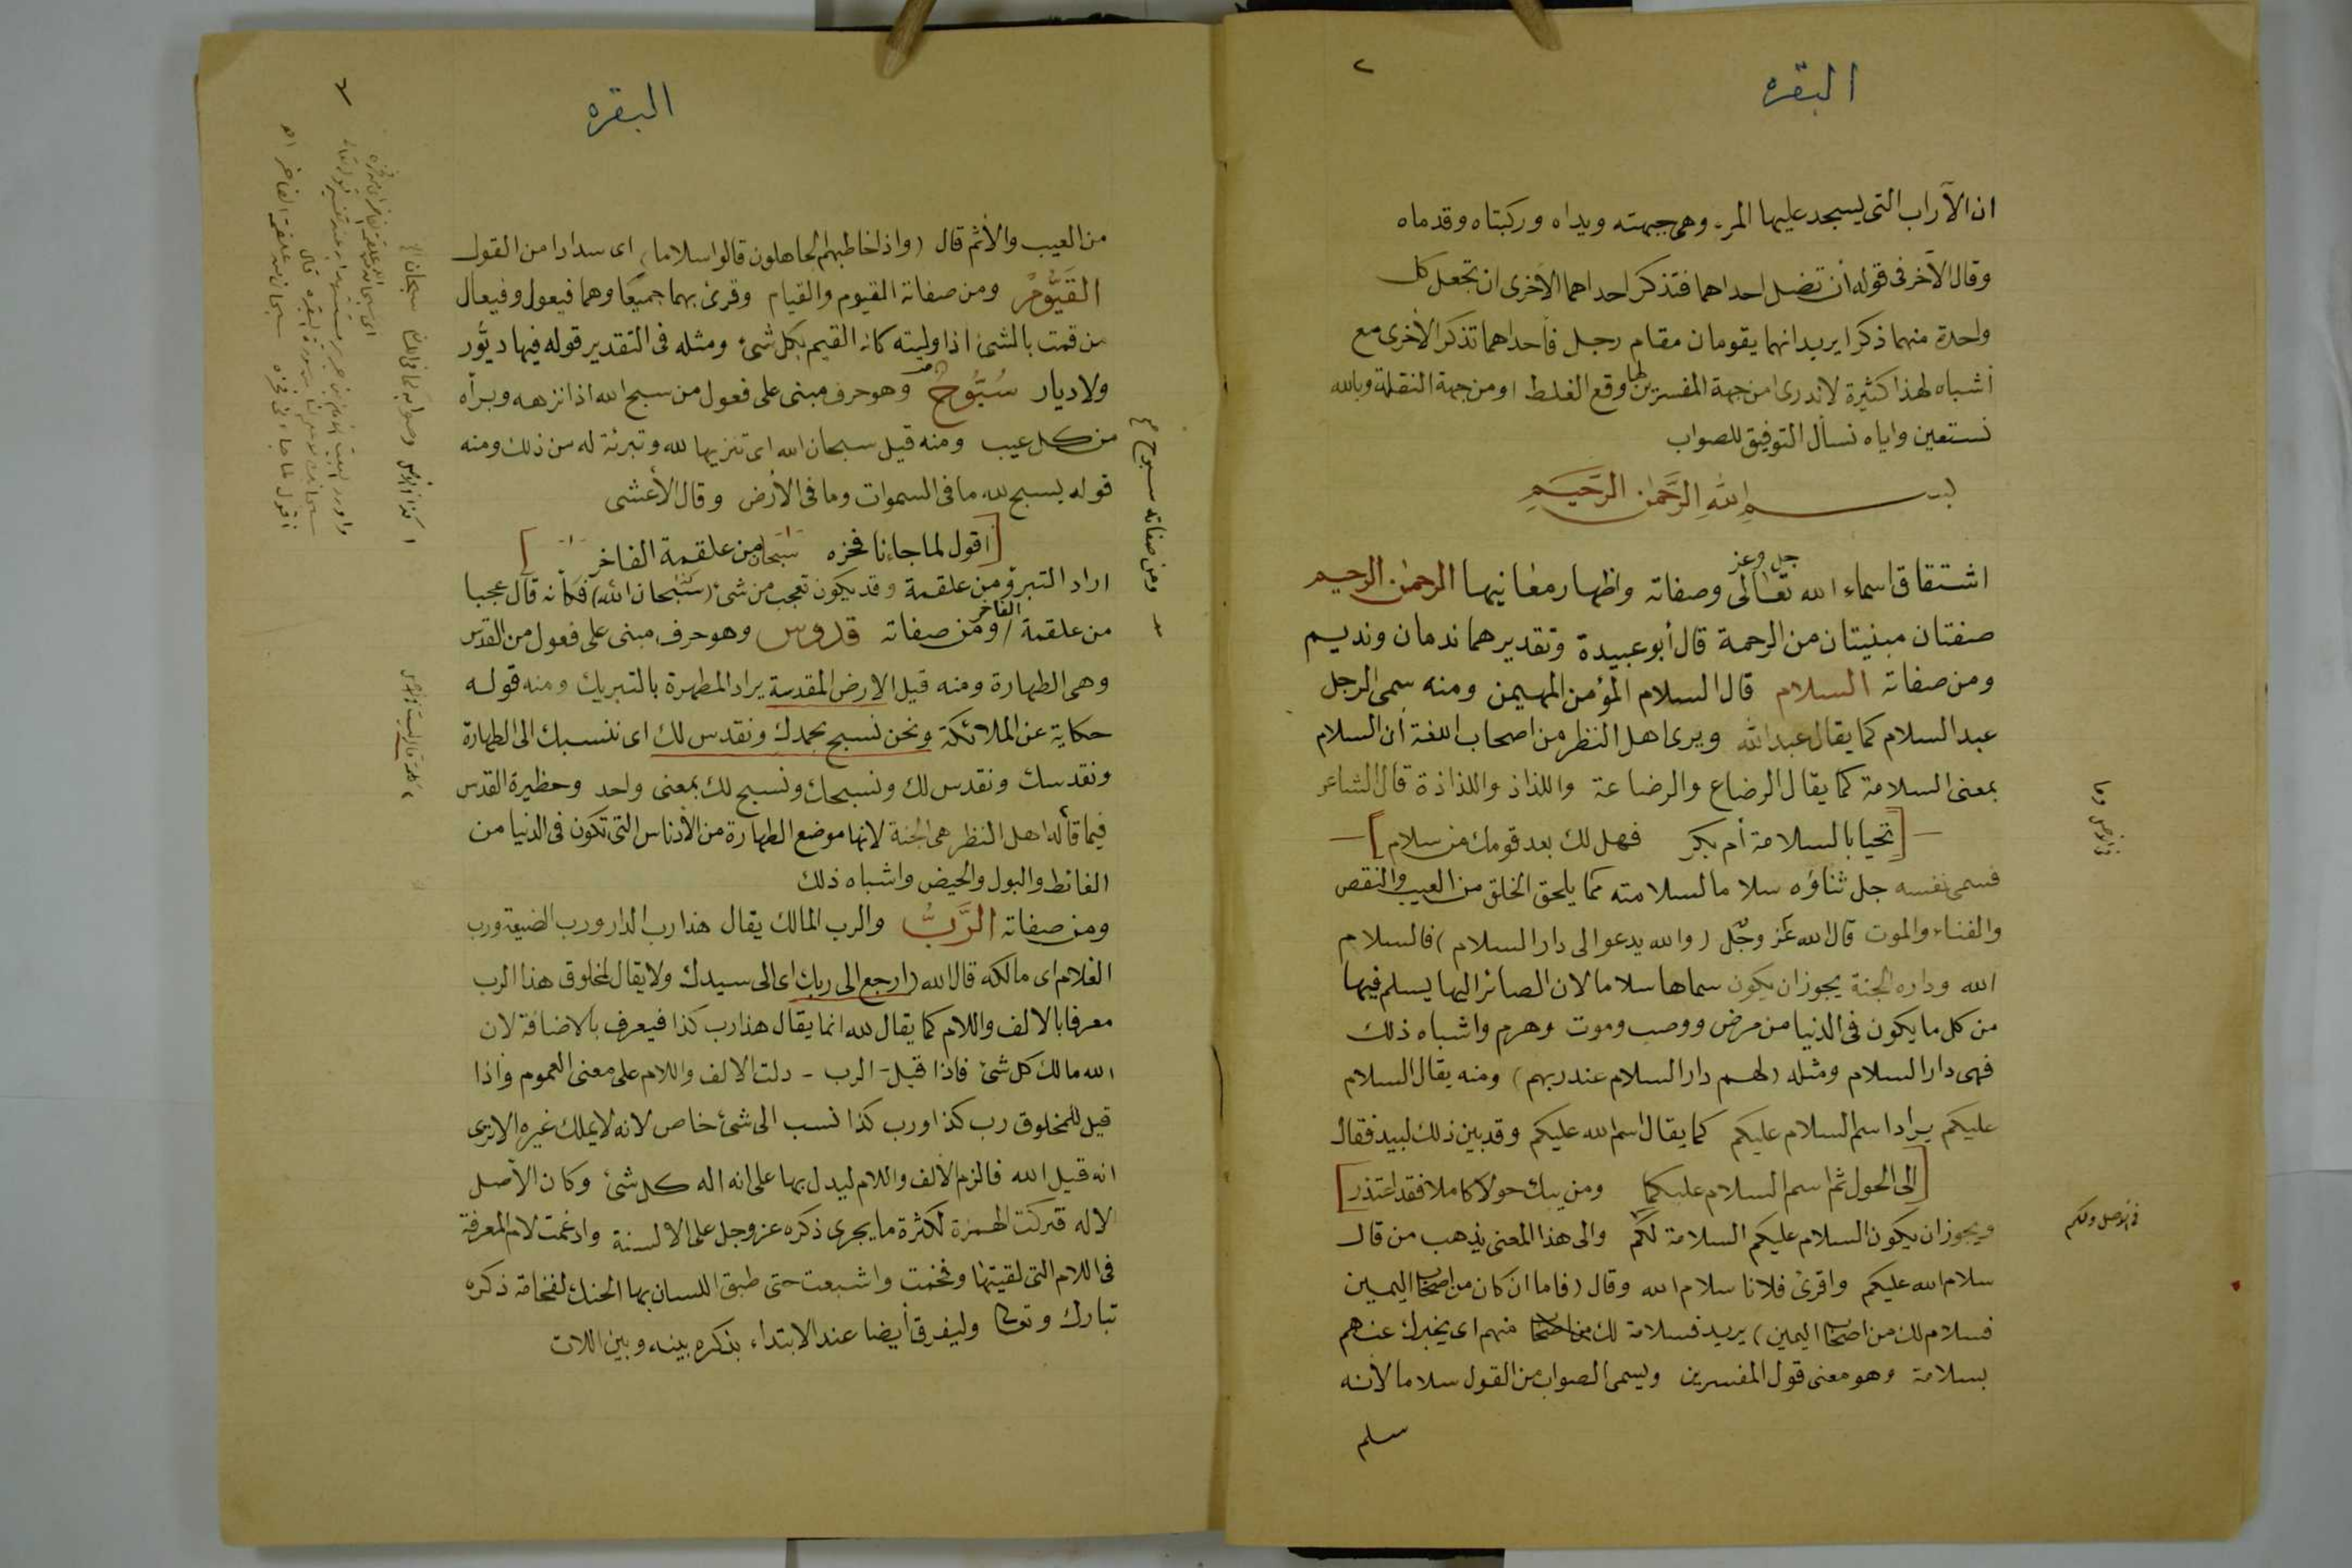 البقره
٢
ان الآراب التى يسجد عليها المرء وهى جبهته ويداه وركبتاه وقدماه
وقال الآخر فى قوله أن تضل احداهما فتذكر احداهما الاخرى ان تجعل كل
واحدة منهما ذكرا يريد انهما يقومان مقام رجل فأحداهما تذكر الأخرى مع
أشباه لهذا كثيرة لا ندرى امن جهة المفسرين لها وقع الغلط او من جهة النقلة وبالله
نستعين واياه نسأل التوفيق للصواب
بسم الله الرَّحمٰن الرَّحيم
اشتقاق اسماء الله تعالى جل وعز وصفاته واظهار معانيها الرحمٰن الرحيم
صفتان مبنيتان من الرحمة قال أبو عبيدة وتقديرهما ندمان ونديم
ومن صفاته السلام قال السلام المؤمن المهيمن ومنه سمى الرجل
عبد السلام كما يقال عبد الله ويرى اهل النظر من اصحاب اللغة أن السلام
بمعنى السلامة كما يقال الرضاع والرضاعة واللذاذ واللذاذة قال الشاعر
[تحيا بالسلامة أم بكر فهل لك بعد قومك من سلام]
فسمى نفسه جل ثناؤه سلاما لسلامته مما يلحق الخلق من العيب والنقص
والفناء والموت قال الله عز وجل (والله يدعو الى دار السلام) فالسلام
الله وداره الجنة يجوز ان يكون سماها سلاما لان الصائر اليها يسلم فيها
من كل ما يكون فى الدنيا من مرض ووصب وموت وهرم واشباه ذلك
فهى دار السلام ومثله (لهم دار السلام عند ربهم) ومنه يقال السلام
عليكم يراد اسم السلام عليكم كما يقال اسم الله عليكم وقد بين ذلك لبيد فقال
[إلى الحول ثم اسم السلام عليكما ومن يبك حولا كاملا فقد اعتذر]
ويجوز ان يكون السلام عليكم السلامة لكم والى هذا المعنى يذهب من قال
سلام الله عليكم واقرئ فلانا سلام الله وقال (فاما ان كان من اصحاب اليمين
فسلام لك من اصحاب اليمين) يريد فسلامة لك من اصحاب منهم اى يخبرك عنهم
بسلامة وهو معنى قول المفسرين ويسمى الصواب من القول سلاما لأنه
سلم
فى الاصل وما
فى الاصل ولكم
البقره
٣
من العيب والأثم قال (واذا خاطبهم الجاهلون قالوا سلاما) اى سدادا من القول
القَيُّومُ ومن صفاته القيوم والقيام وقرئ بهما جميعًا وهما فيعول وفيعال
من قمت بالشئ اذا وليته كانه القيم بكل شئ ومثله فى التقدير قوله فيها ديُّور
ولا ديار سُبُّوحٌ وهو حرف مبنى على فعول من سبح الله اذا نزهه وبرأه
من كل عيب ومنه قيل سبحان الله اى تنزيها لله وتبرئة له من ذلك ومنه
قوله يسبح لله ما فى السموات وما فى الأرض وقال الأعشى
[أقول لما جاءنا فخره سبحان من علقمة الفاخر]
اراد التبرؤ من علقمة وقد يكون تعجب من شئ (سبحان الله) فكأنه قال عجبا
من علقمة الفاخر / ومن صفاته قدوس وهو حرف مبنى على فعول من القدس
وهى الطهارة ومنه قيل الارض المقدسة يراد المطهرة بالتبريك ومنه قوله
حكاية عن الملائكة ونحن نسبح بحمدك ونقدس لك اى ننسبك الى الطهارة
ونقدسك ونقدس لك ونسبحك ونسبح لك بمعنى واحد وحظيرة القدس
فيما قاله اهل النظر هى الجنة لانها موضع الطهارة من الأدناس التى تكون فى الدنيا من
الغائط والبول والحيض واشباه ذلك
ومن صفاته الرَّبُّ والرب المالك يقال هذا رب الدار ورب الضيعة ورب
الغلام اى مالكه قال الله (ارجع الى ربك اى الى سيدك ولا يقال لمخلوق هذا الرب
معرفا بالالف واللام كما يقال لله انما يقال هذا رب كذا فيعرف بالاضافة لان
الله مالك كل شئ فاذا قيل - الرب - دلت الالف واللام على معنى العموم واذا
قيل للمخلوق رب كذا ورب كذا نسب الى شئ خاص لانه لا يملك غيره الا ترى
انه قيل الله فالزم الالف واللام ليدل بها على انه اله كل شئ وكان الأصل
لاله فتركت الهمزة لكثرة ما يجرى ذكره عز وجل على الالسنة وادغمت لام المعرفة
فى اللام التى لقيتها وفخمت واشبعت حتى طبق اللسان بها الحنك لفخامة ذكره
تبارك وتعالى وليفرق أيضا عند الابتداء بذكره بينه وبين اللات
ومن صفاته سبوح